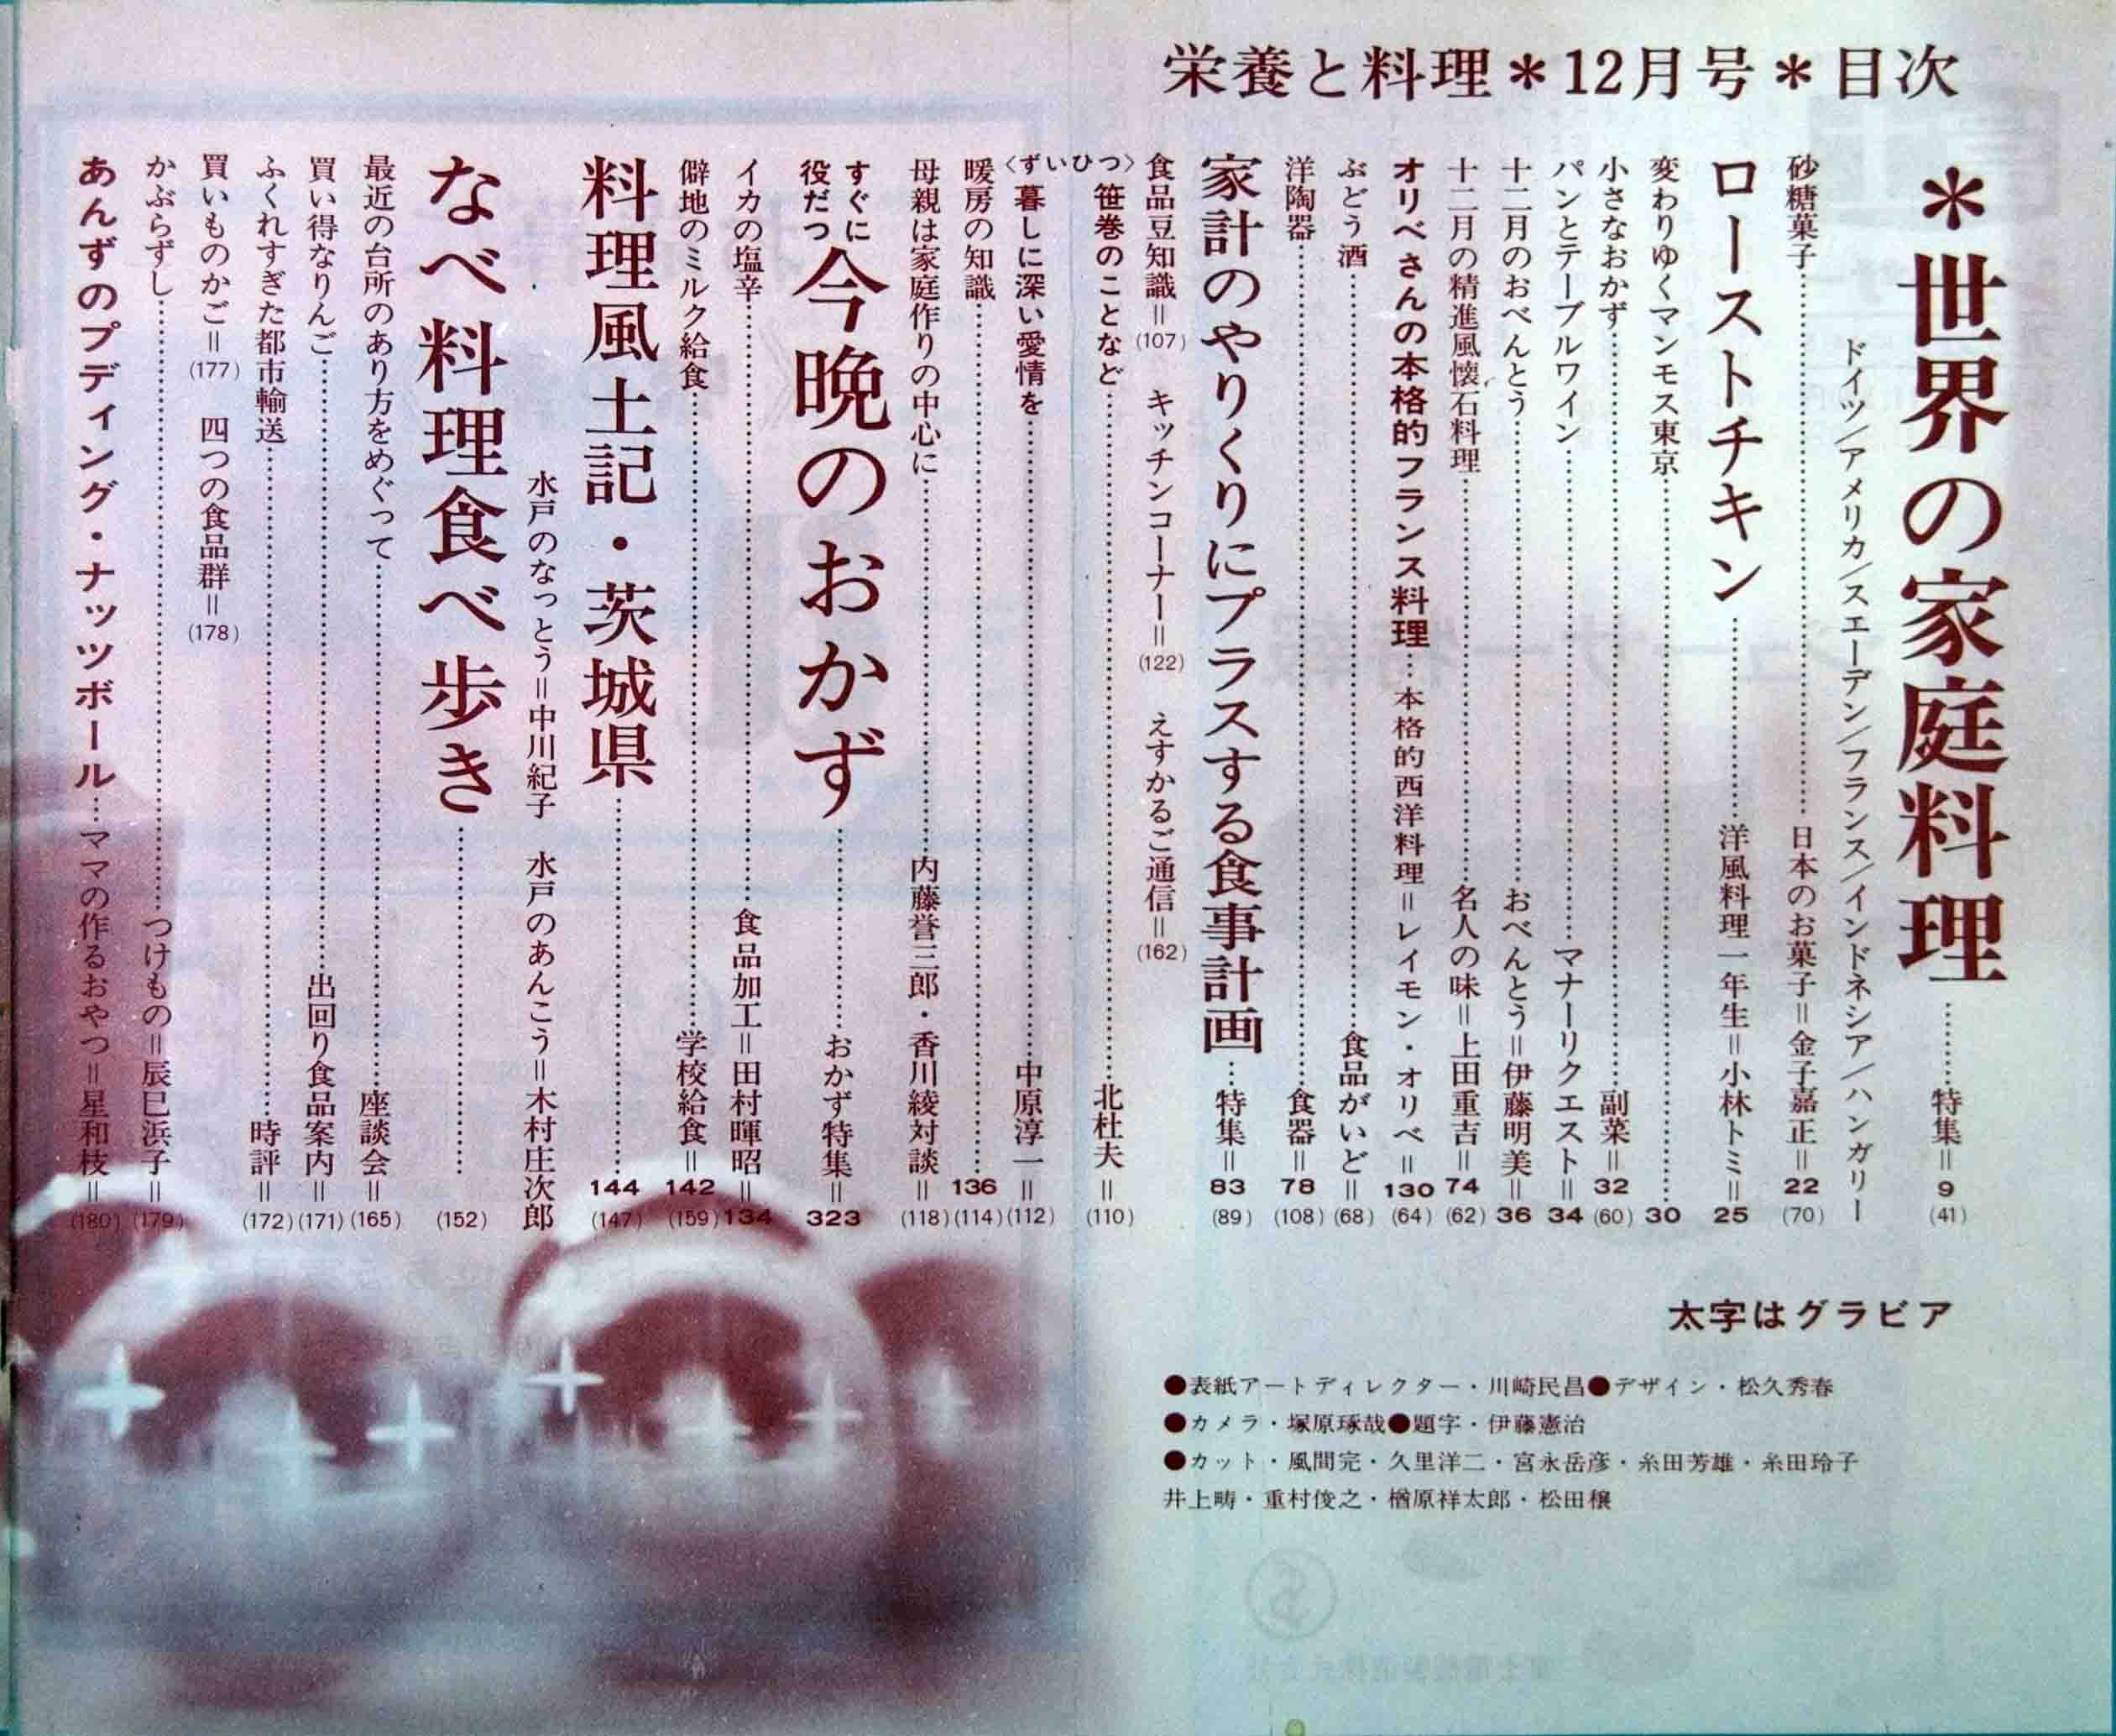 栄養と料理＊12月号＊目次
＊世界の家庭料理………特集＝9 (41)
ドイツ／アメリカ／スエーデン／フランス／インドネシア／ハンガリー
砂糖菓子………日本のお菓子＝金子嘉正＝22 (70)
ローストチキン………洋風料理一年生＝小林トミ＝25
変わりゆくマンモス東京………30
小さなおかず………副菜＝32 (60)
パンとテーブルワイン………マナーリクエスト＝34
十二月のおべんとう………おべんとう＝伊藤明美＝36
十二月の精進風懐石料理………名人の味＝上田重吉＝74 (62)
オリベさんの本格的フランス料理…本格的西洋料理＝レイモン・オリベ＝130 (64)
ぶどう酒………食品がいど＝(68)
洋陶器………食器＝78 (108)
家計のやりくりにプラスする食事計画…特集＝83 (89)
食品豆知識＝(107) キッチンコーナー＝(122) えすかるご通信＝(162)
〈ずいひつ〉
笹巻のことなど………北杜夫＝(110)
暮しに深い愛情を………中原淳一＝(112)
暖房の知識………136 (114)
母親は家庭作りの中心に………内藤誉三郎・香川綾対談＝(118)
すぐに役だつ今晩のおかず………おかず特集＝323
イカの塩辛………食品加工＝田村暉昭＝134
僻地のミルク給食………学校給食＝142 (159)
料理風土記・茨城県………144 (147)
水戸のなっとう＝中川紀子 水戸のあんこう＝木村庄次郎
なべ料理食べ歩き………(152)
最近の台所のあり方をめぐって………座談会＝(165)
買い得なりんご………出回り食品案内＝(171)
ふくれすぎた都市輸送………時評＝(172)
買いものかご＝(177) 四つの食品群＝(178)
かぶらずし………つけもの＝辰巳浜子＝(179)
あんずのプディング・ナッツボール…ママの作るおやつ＝星和枝＝(180)
太字はグラビア
●表紙アートディレクター・川崎民昌●デザイン・松久秀春
●カメラ・塚原琢哉●題字・伊藤憲治
●カット・風間完・久里洋二・宮永岳彦・糸田芳雄・糸田玲子
井上疇・重村俊之・楢原祥太郎・松田穣